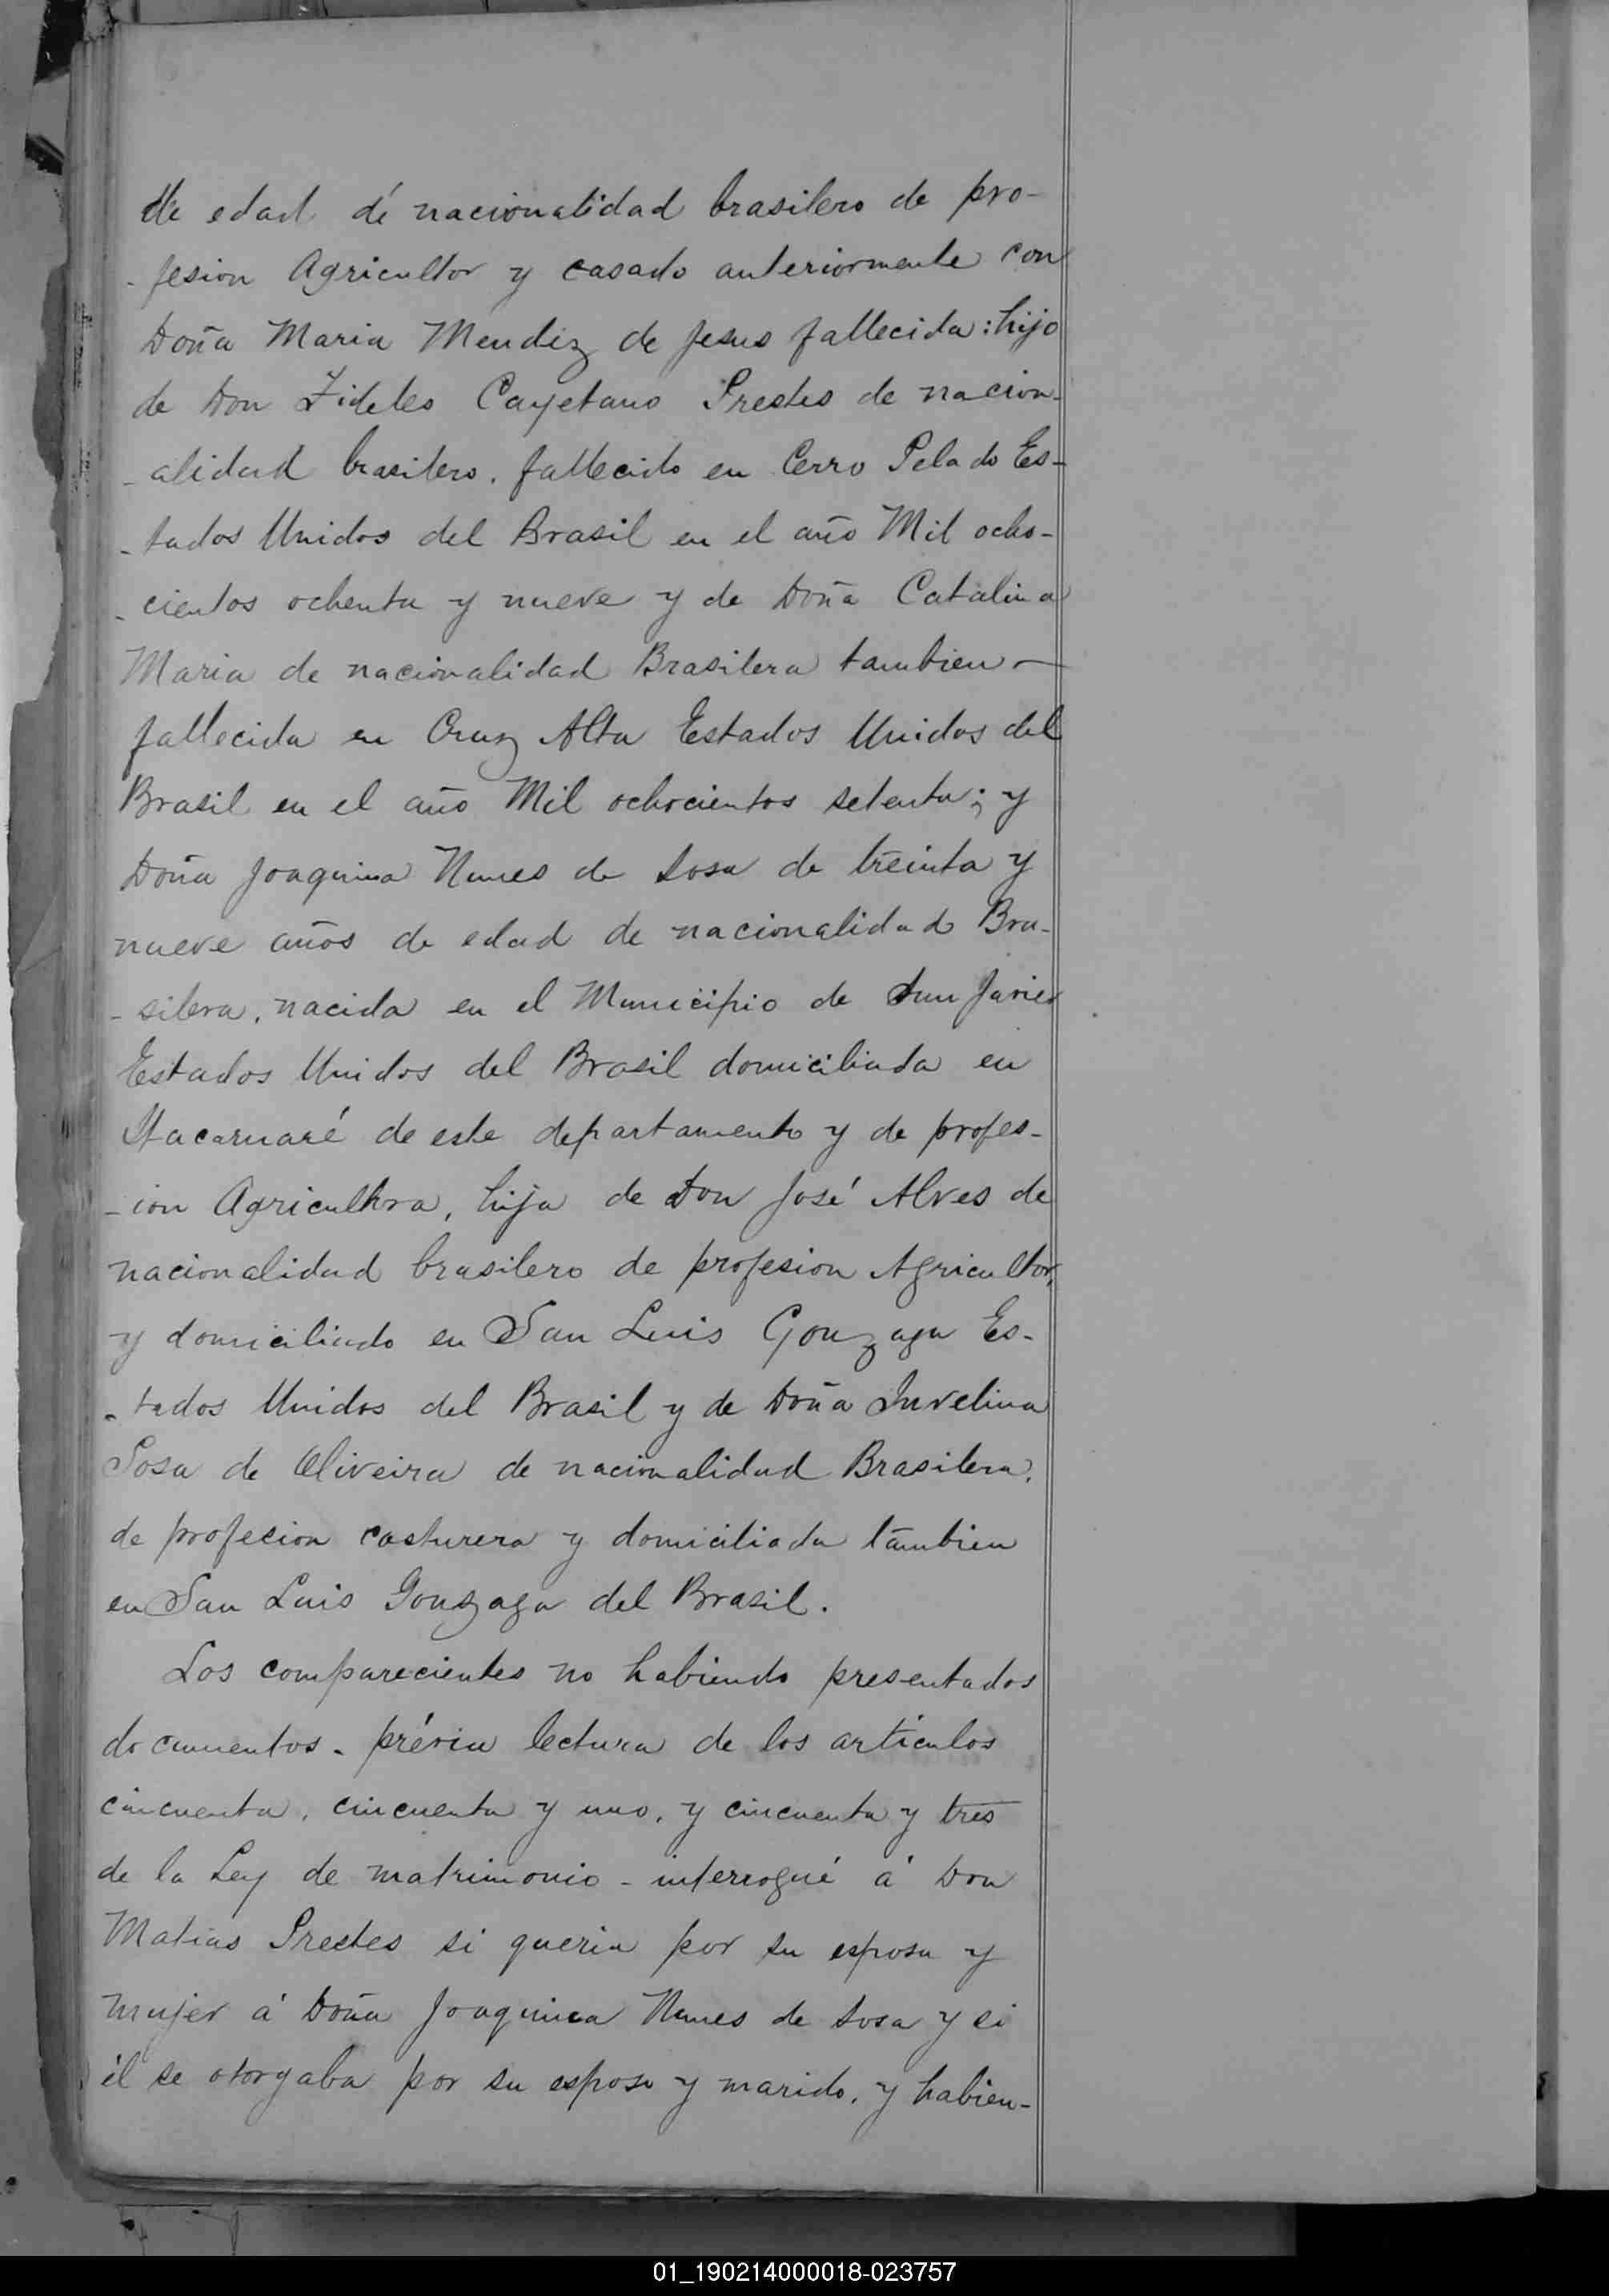 de edad de nacionalidad brasilero de pro-
-fesion Agricultor y casado anteriormente con
Doña Maria Mendez de Jesus fallecida: hijo
de Don Fideles Cayetano Prestes de nacion-
-alidad brasilero, fallecido en Cerro Pelado Es-
-tados Unidos del Brasil en el año Mil ocho-
-cientos ochenta y nueve y de Doña Catalina
Maria de nacionalidad Brasilera tambien —
fallecida en Cruz Alta Estados Unidos del
Brasil en el año Mil ochocientos setenta; y
Doña Joaquina Nunes de Sosa de treinta y
nueve años de edad de nacionalidad Bra-
-silera, nacida en el Municipio de San Javier
Estados Unidos del Brasil domiciliada en
Itacaruaré de este departamento y de profes-
-ion Agricultora, hija de Don José Alves de
nacionalidad brasilero de profesion Agricultor,
y domiciliado en San Luis Gonzaga Es-
-tados Unidos del Brasil y de Doña Juvelina
Sosa de Oliveira de nacionalidad Brasilera,
de profecion costurera y domiciliada tambien
en San Luis Gonzaga del Brasil.
Los comparecientes no habiendo presentados
documentos - prévia lectura de los artículos
cincuenta, cincuenta y uno, y cincuenta y tres
de la Ley de matrimonio - interrogué á Don
Matias Prestes si queria por su esposa y
mujer á Doña Joaquina Nunes de Sosa y si
él se otorgaba por su esposo y marido, y habien-
01_190214000018-023757